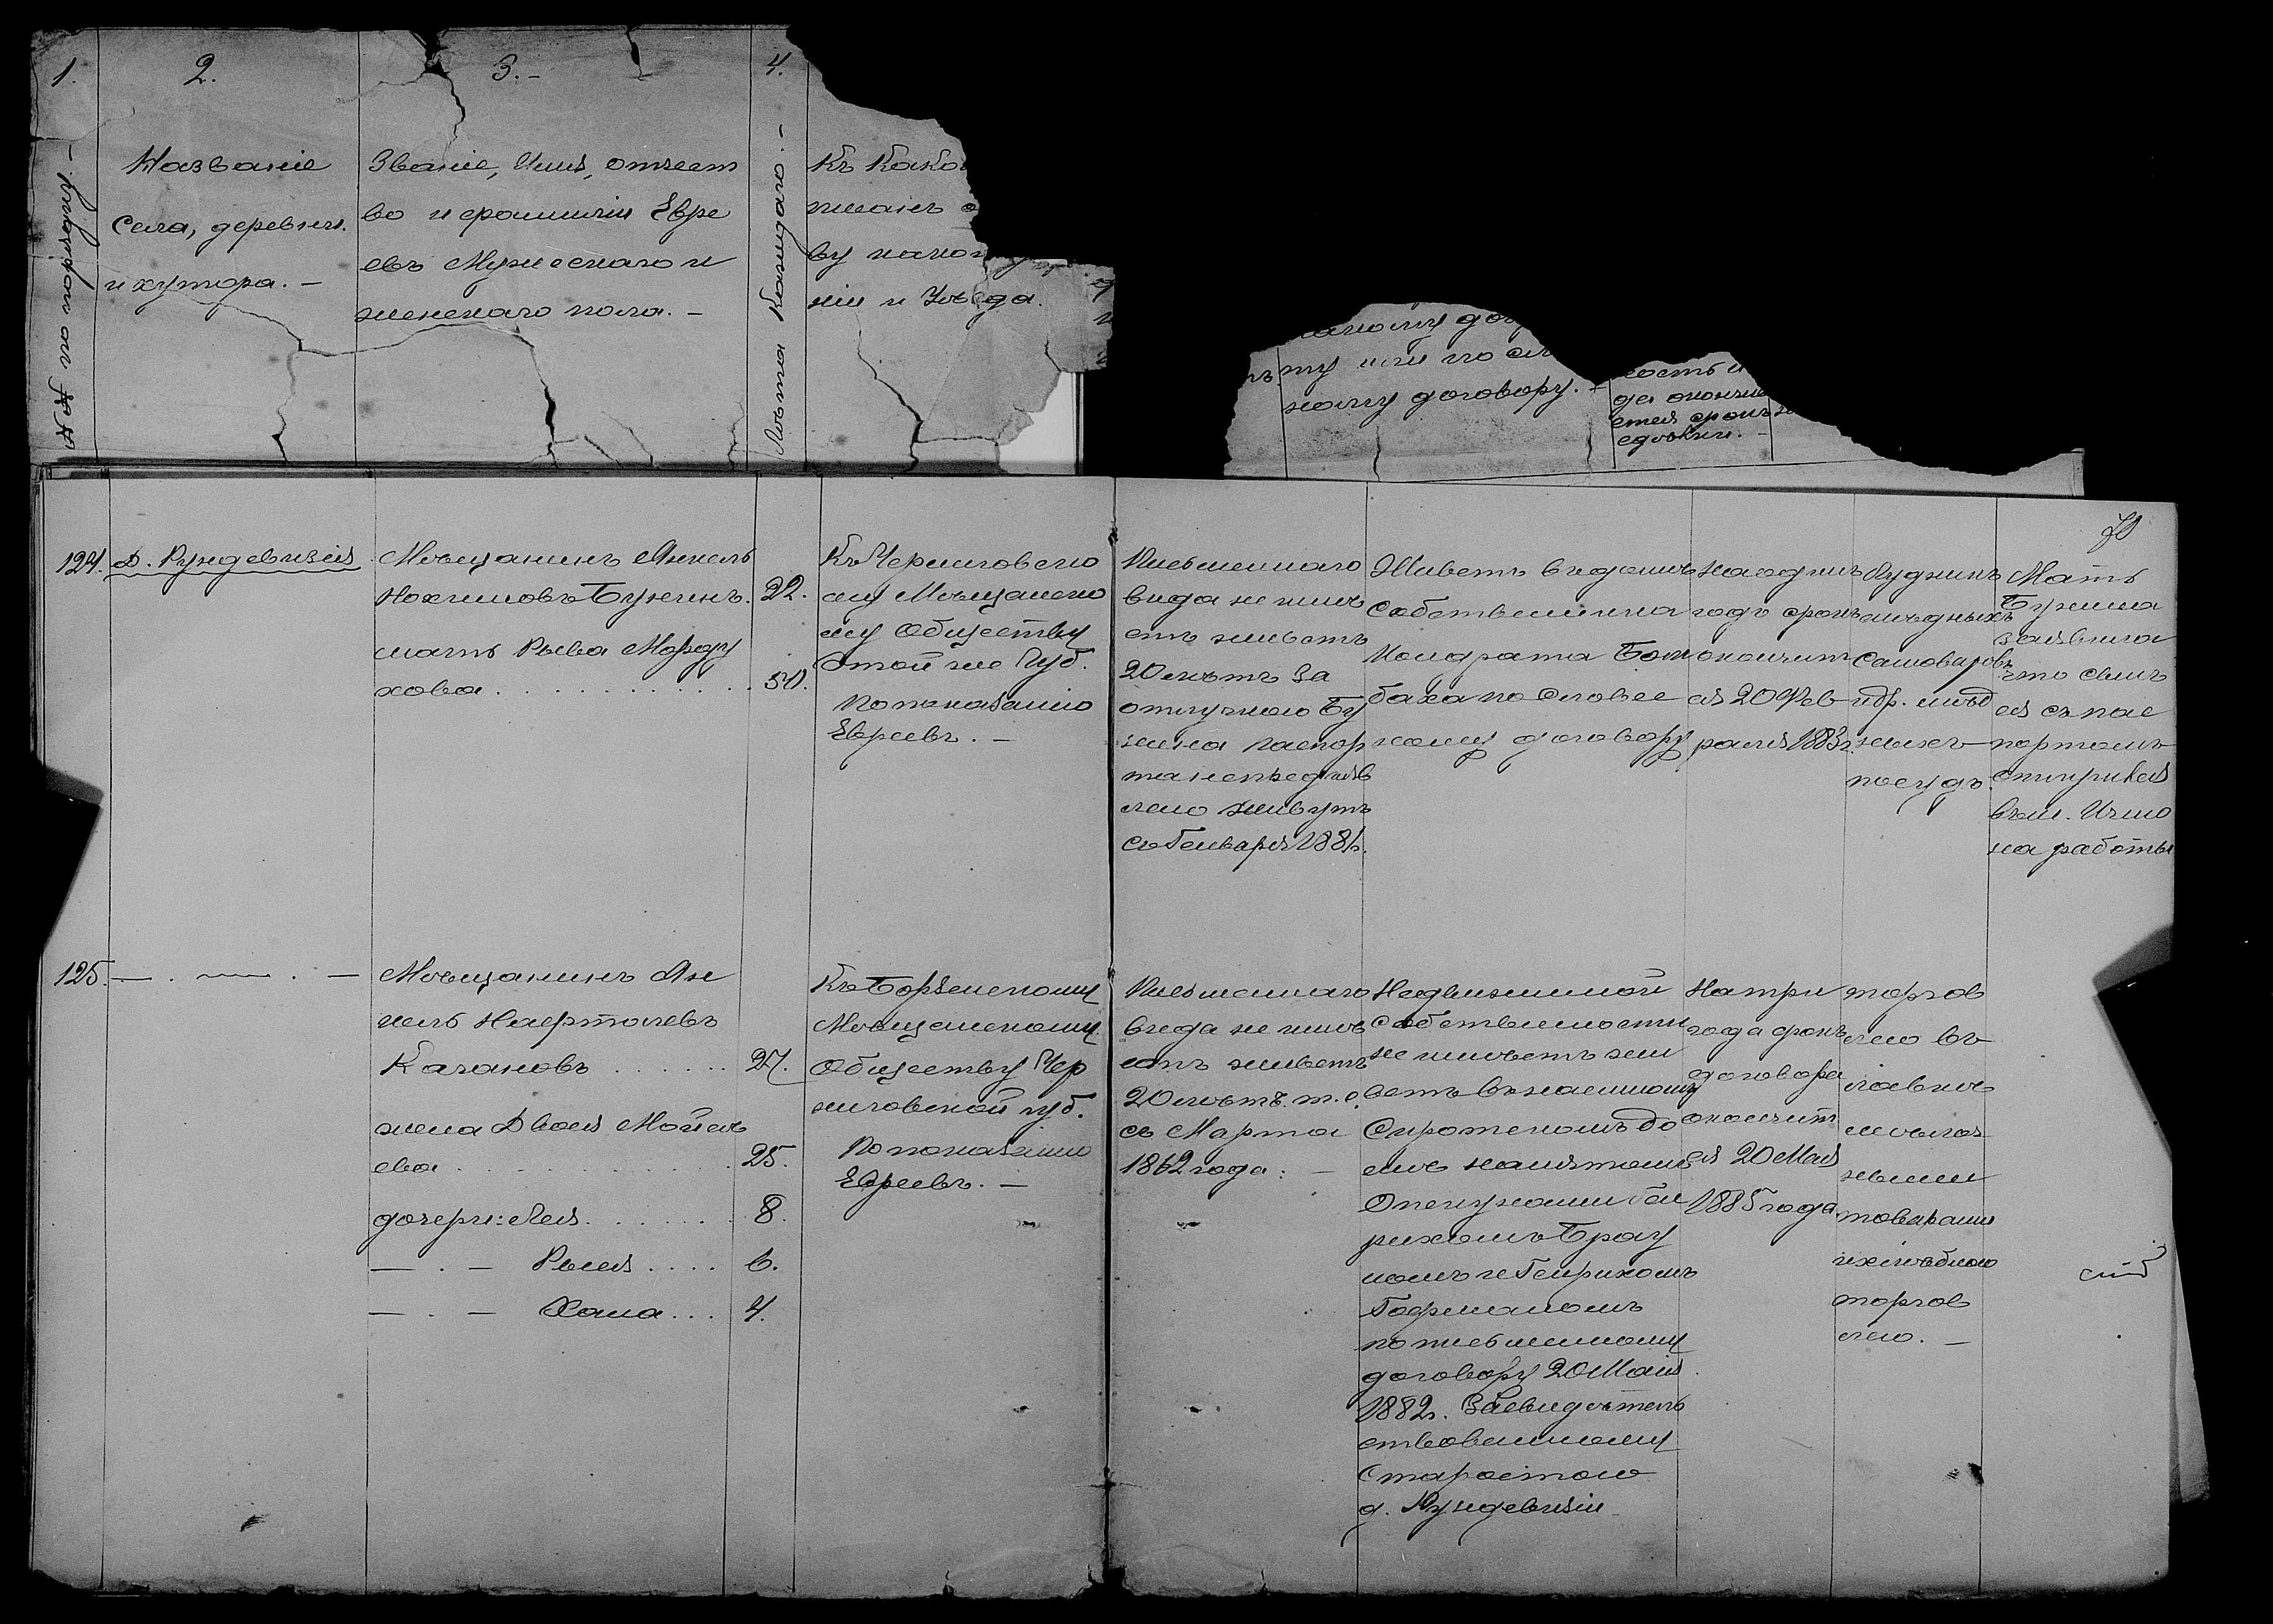 1.
№№ по порядку. —
2.
Названіе
села, деревни
и хутора. —
3. —
Званіе, Имя, отчест
во и фамилія Евре
евъ Мужескаго и
женскаго пола. —
4.
Лѣта каждаго. —
Къ како
писанъ о
ву како
ніи и Уѣзда.
му или по сл
ному договору. —
ность и
да окончи
ется срокъ
сдѣлки. —
70
124.
Д. Рундевизія
Мѣщанинъ Янкель
Нохимовъ Бужинъ. 22.
мать Рыва Морду
хова . . . . . . . . . . . 50.
Къ Черниговско
му Мѣщанско
му Обществу
той же Губ.
По показанію
Евреевъ. —
Письменнаго
вида не имѣ
етъ живетъ
20 лѣтъ за
отлучкою Бу
жина паспор
та не предъяв
лено живутъ
съ Генваря 1881г.
Живетъ въ домѣ
Собственника
Кондрата Бом
баха по словес
ному договору
на одинъ
годъ срокъ
окончит
ся 20 Фев
раля 1883г.
Лудникъ
мѣдныхъ
самоваровъ
и др. мѣд
ныхъ
посудъ.
Мать
Бужина
заявила
что сынъ
ея съ пас
портомъ
отлучился
въ м. Ичню
на работы
125.
— . — . —
Мѣщанинъ Ян
кель Нафтолевъ
Кагановъ . . . . . . 27.
жена Двося Мойсѣ
ева . . . . . . . . . . . 25.
дочери: Лея. . . . . . . 8.
— . — Рыся . . . . 6.
— . — Хана . . . 4.
Къ Борзенскому
Мѣщанскому
Обществу Чер
ниговской губ.
По показанію
Евреевъ. —
Письменнаго
вида не имѣ
етъ живетъ
20 лѣтъ. т. е.
съ Марта
1862 года. —
Недвижимой
собственности
не имѣетъ жи
ветъ въ наемномъ
Сиротскомъ до
мѣ нанятомъ
Опекунами Ген
рихомъ Брау
номъ и Генрихомъ
Гофманомъ
по письменному
договору 20 Маія
1882г. Засвидѣтель
ствованному
Старостою
д. Рундевизіи
На три
года срокъ
договора
окончит
ся 20 Мая
1885 года.
торгов
лею въ
лавкѣ
мѣлоч
ными
товарами
и хлѣбною
торгов
лею. —